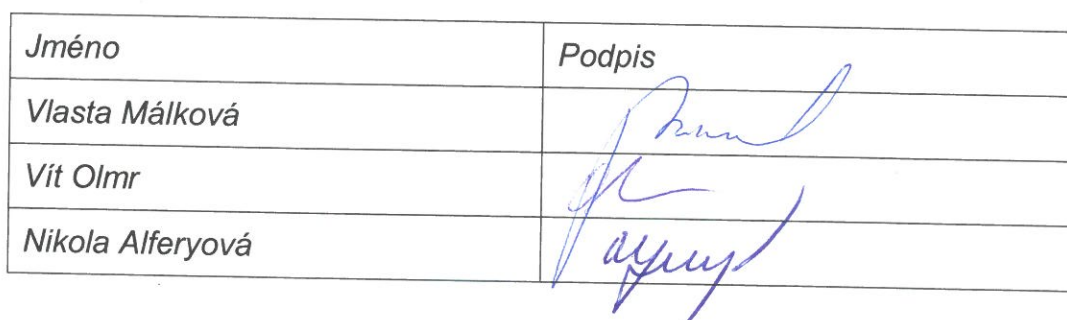 Jméno Podpis
Vlasta Málková
Vít Olmr
Nikola Alferyová